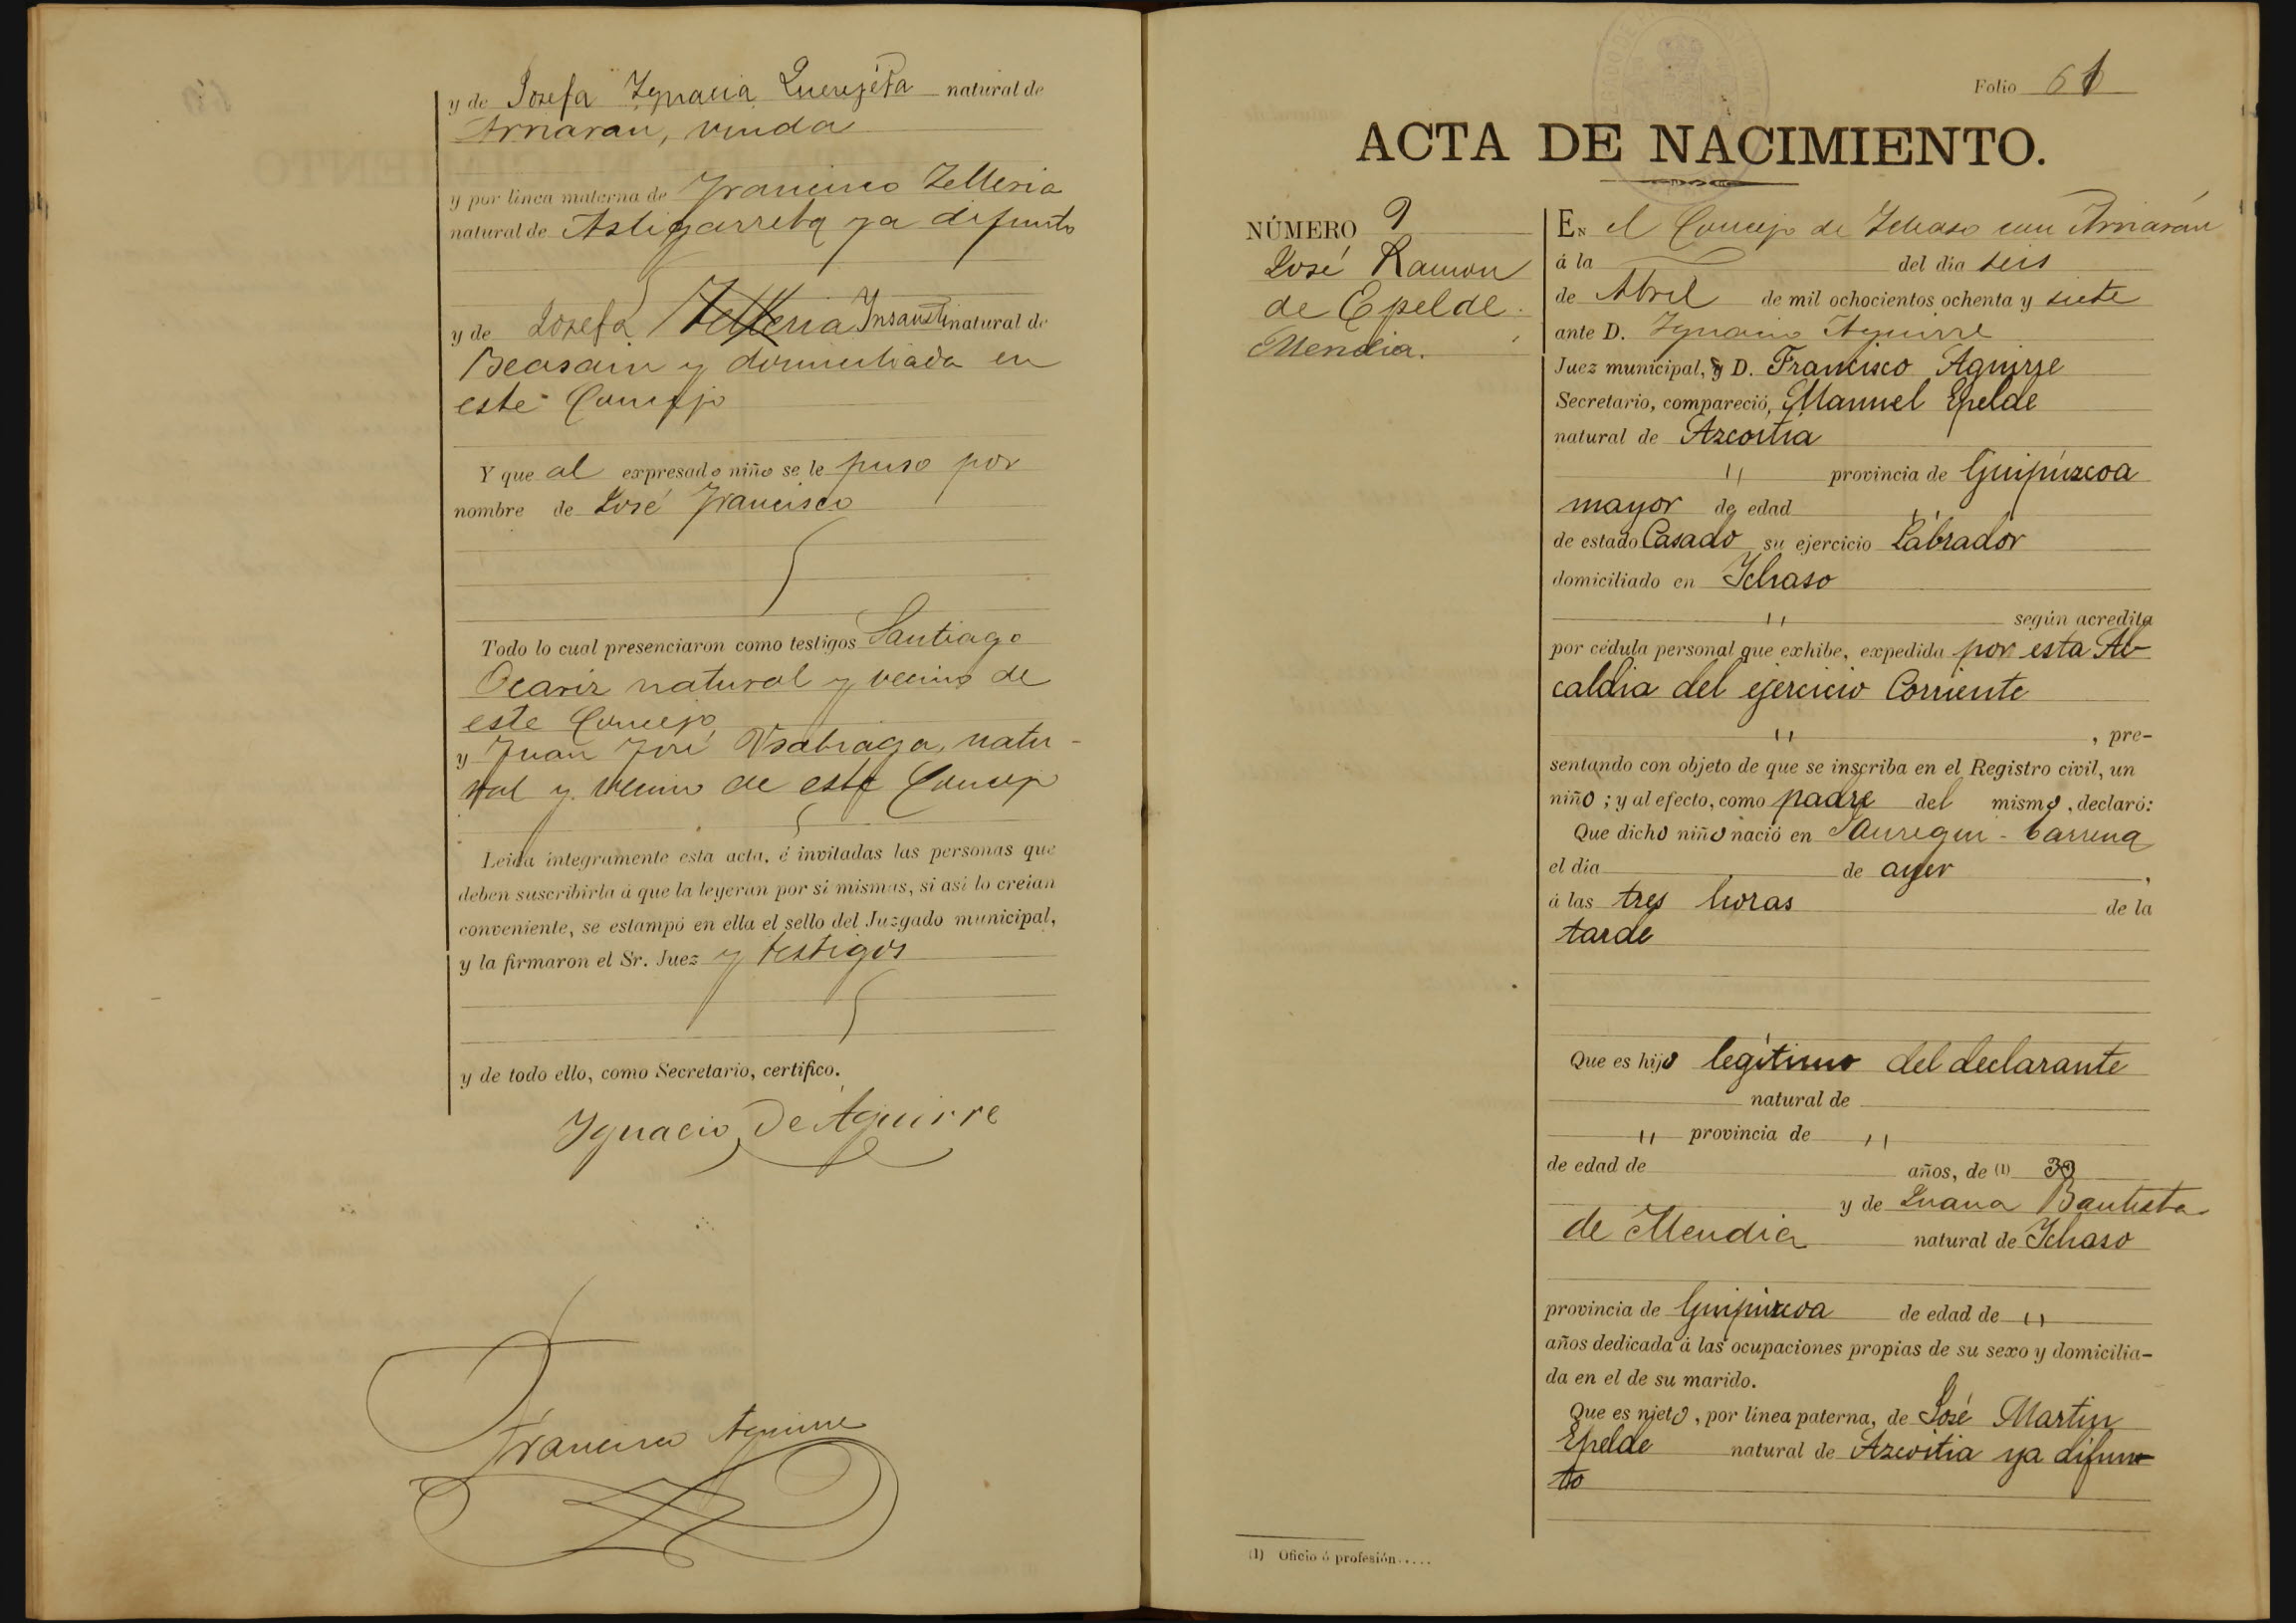 y de Josefa Ygnacia Querejeta natural de
Arriaran, viuda
y por linea materna de Francisco Telleria
natural de Astigarreta ya difunto
y de Josefa Telleria Insausti natural de
Beasain y domiciliada en
este Concejo
Y que al expresado niño se le puso por
nombre de José Francisco
Todo lo cual presenciaron como testigos Santiago
Ocariz natural y vecino de
este Concejo
y Juan José Usabiaga, natu-
ral y vecino de este Concejo
Leida integramente esta acta, é invitadas las personas que
deben suscribirla á que la leyeran por si mismas, si asi lo creian
conveniente, se estampó en ella el sello del Juzgado municipal,
y la firmaron el Sr. Juez y testigos
y de todo ello, como Secretario, certifico.
Ygnacio De Aguirre
Francisco Aguirre
Folio 61
ACTA DE NACIMIENTO.
NÚMERO 9
José Ramon
de Epelde
Mendia.
EN el Concejo de Ichaso con Arriarán
á la del dia seis
de Abril de mil ochocientos ochenta y siete
ante D. Ygnacio Aguirre
Juez municipal, y D. Francisco Aguirre
Secretario, compareció, Manuel Epelde
natural de Azcoitia
" provincia de Guipúzcoa
mayor de edad "
de estado Casado su ejercicio Labrador
domiciliado en Ichaso
" según acredita
por cédula personal que exhibe, expedida por esta Al-
caldia del ejercicio Corriente
" , pre-
sentando con objeto de que se inscriba en el Registro civil, un
niño; y al efecto, como padre del mismo, declaró:
Que dicho niño nació en Jauregui-barrena
el dia de ayer ,
á las tres horas de la
tarde
Que es hijo legítimo del declarante
natural de
" provincia de "
de edad de años, de (1) 33
y de Juana Bautista
de Mendia natural de Ichaso
provincia de Guipúzcoa de edad de "
años dedicada á las ocupaciones propias de su sexo y domicilia-
da en el de su marido.
Que es nieto, por linea paterna, de José Martin
Epelde natural de Azcoitia ya difun-
to
(1) Oficio ó profesión.....